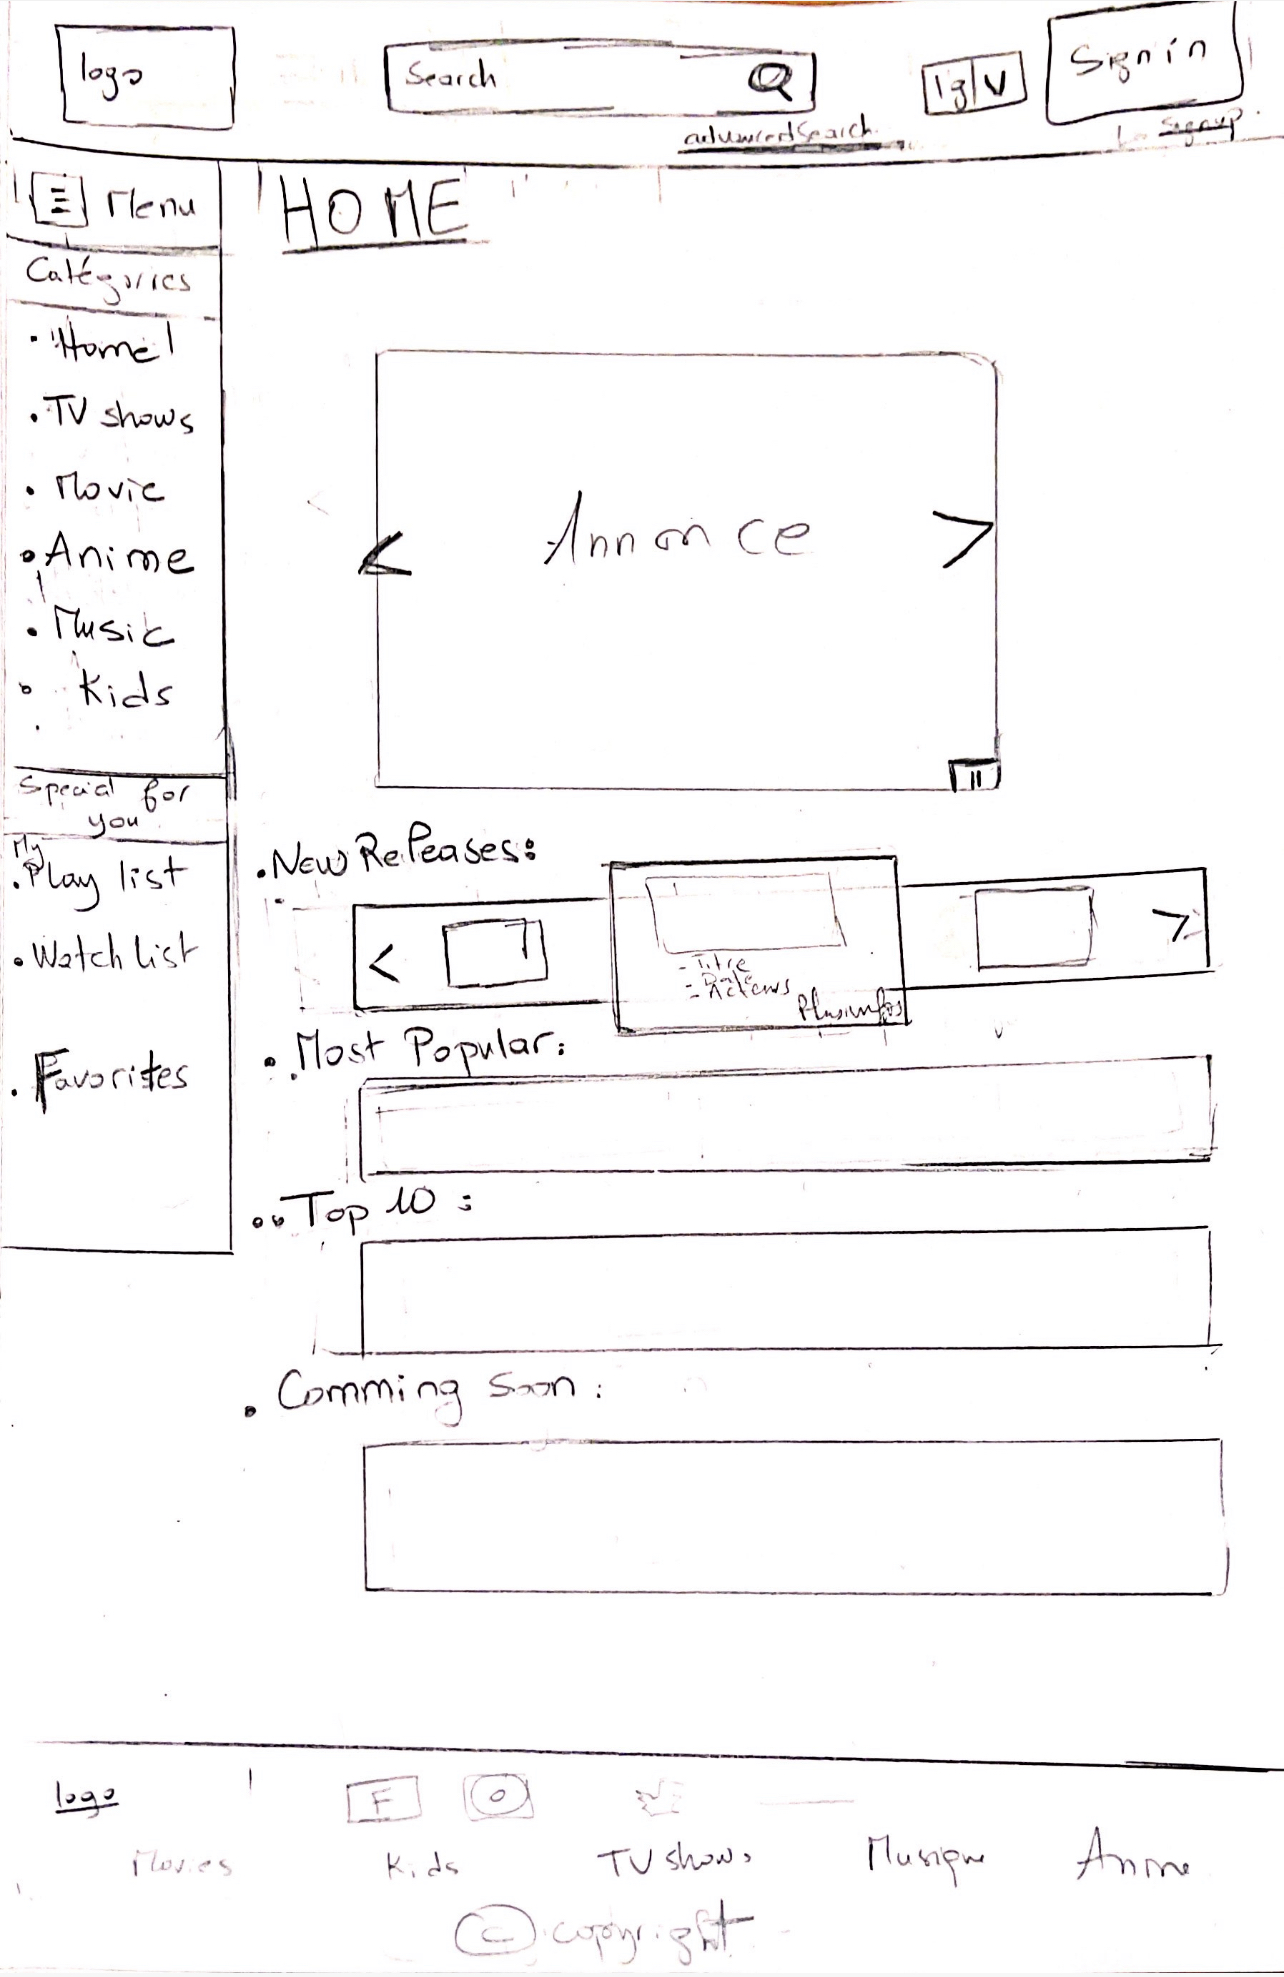 logo
Search
lg V
Sign in
advanced Search
Signup
Menu
HOME
Catégories
Home
TV shows
Movie
Anime
Music
Kids
Annonce
Special for
you
My
Play list
Watch list
Favorites
New Releases:
- Titre
- Date
- Acteurs
Plus infos
Most Popular:
Top 10 :
Comming Soon :
logo
F
Movies
Kids
TV shows
Musique
Anime
© copyright